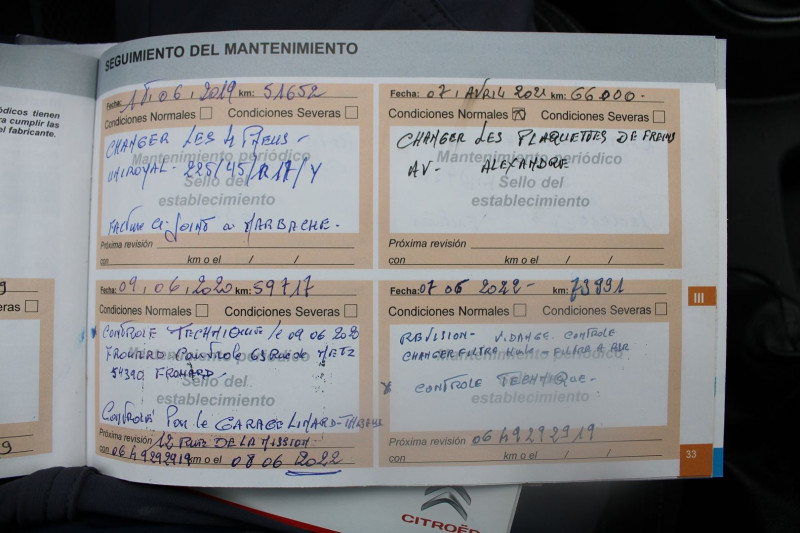 SEGUIMIENTO DEL MANTENIMIENTO
ódicos tienen
ra cumplir las
el fabricante.
Fecha: 06.2019 km: 51652
Condiciones Normales Condiciones Severas
CHANGER LES 4 PNEUS -
UNIROYAL - 225/45/R17/Y
Mantenimiento periódico
Sello del
establecimiento
FACTURE CI-JOINT A MARBACHE.
Próxima revisión
con km o el / /
Fecha: 07. AVRIL 2021 km: 66000-
Condiciones Normales Condiciones Severas
CHANGER LES PLAQUETTES DE FREINS
Mantenimiento periódico
AV- ALEXANDRE
Sello del
establecimiento
Próxima revisión
con km o el / /
Fecha: 09.06.2020 km: 59717
Condiciones Normales Condiciones Severas
CONTROLE TECHNIQUE le 09 06 2020
FROUARD CONTROLE 63 RUE DE METZ
Mantenimiento periódico
54390 FROUARD-
Sello del
establecimiento
CONTROLE PAR LE GARAGE
Próxima revisión 12 RUE DE LA MISSION
con 0649292919 km o el 08 06 2022
Fecha: 07 06 2022- km: 73991
Condiciones Normales Condiciones Severas
REVISION- VIDANGE CONTROLE
CHANGER FILTRE HUILE - FILTRE A AIR
Mantenimiento periódico
CONTROLE TECHNIQUE-
Sello del
establecimiento
Próxima revisión 0649292919
con km o el / /
eras
III
33
CITROËN